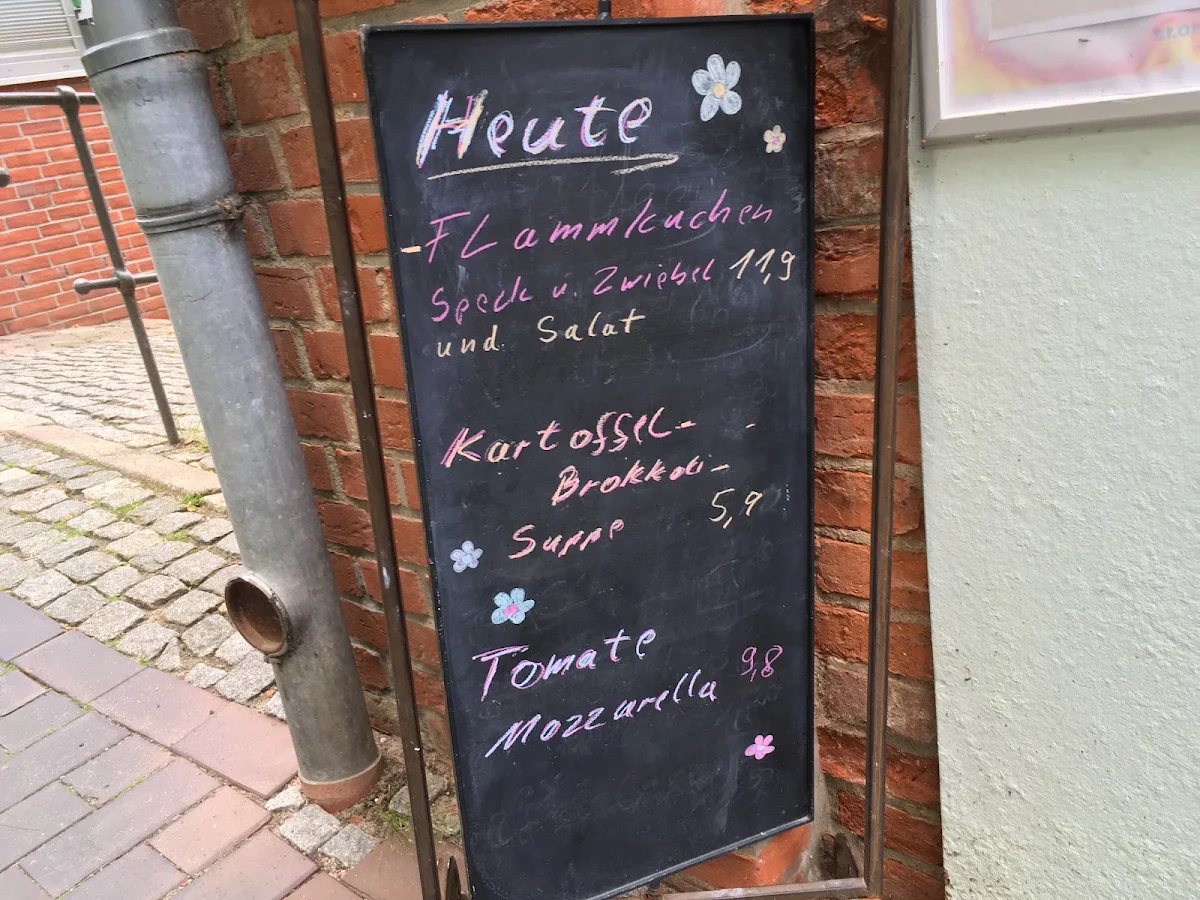 Heute
- Flammkuchen
Speck u. Zwiebel 11,9
und Salat
Kartoffel-
Brokkoli-
Suppe 5,9
Tomate
Mozzarella 9,8